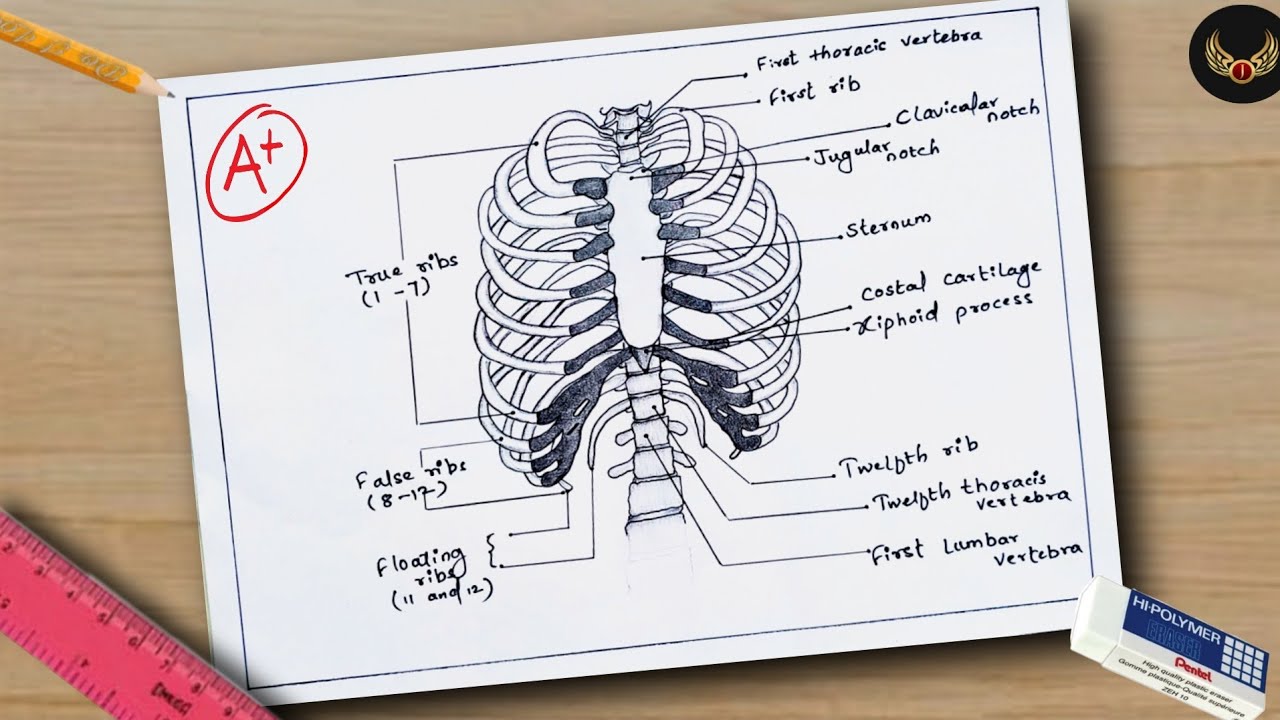 A+
First thoracis vertebra
First rib
Clavicalar
notch
Jugular
notch
Sternum
True ribs
(1 - 7)
Costal cartilage
Xiphoid process
False ribs
(8-12)
Twelfth rib
Twelfth thoracis
vertebra
Floating
ribs
(11 and 12)
First Lumbar
vertebra
J
HI-POLYMER
ERASER
Pentel
High quality plastic eraser
Gomme plastique-Qualité supérieure
ZEH 10